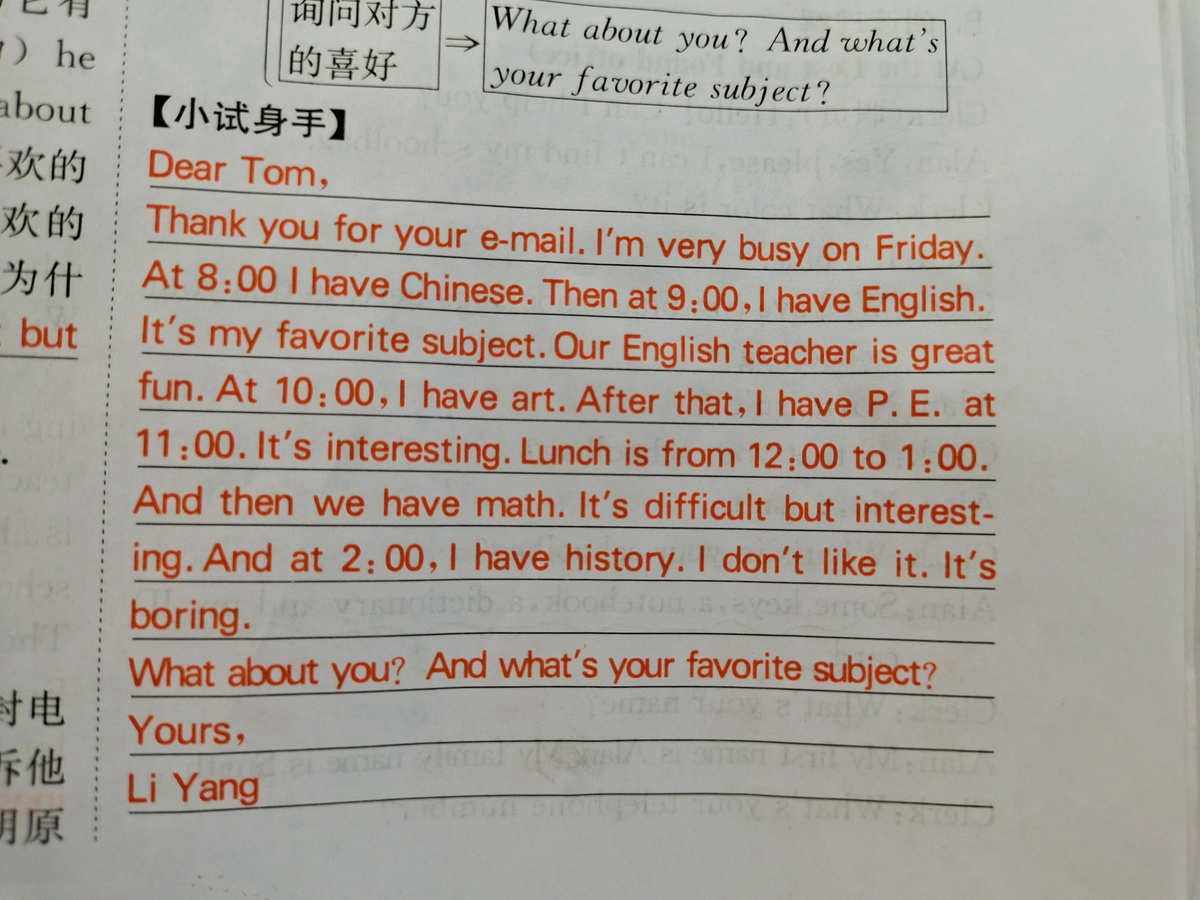 询问对方
的喜好
⇒
What about you? And what's
your favorite subject?
) he
about
欢的
欢的
为什
but
【小试身手】
Dear Tom,
Thank you for your e-mail. I'm very busy on Friday.
At 8:00 I have Chinese. Then at 9:00, I have English.
It's my favorite subject. Our English teacher is great
fun. At 10:00, I have art. After that, I have P. E. at
11:00. It's interesting. Lunch is from 12:00 to 1:00.
And then we have math. It's difficult but interest-
ing. And at 2:00, I have history. I don't like it. It's
boring.
What about you? And what's your favorite subject?
Yours,
Li Yang
封电
诉他
明原